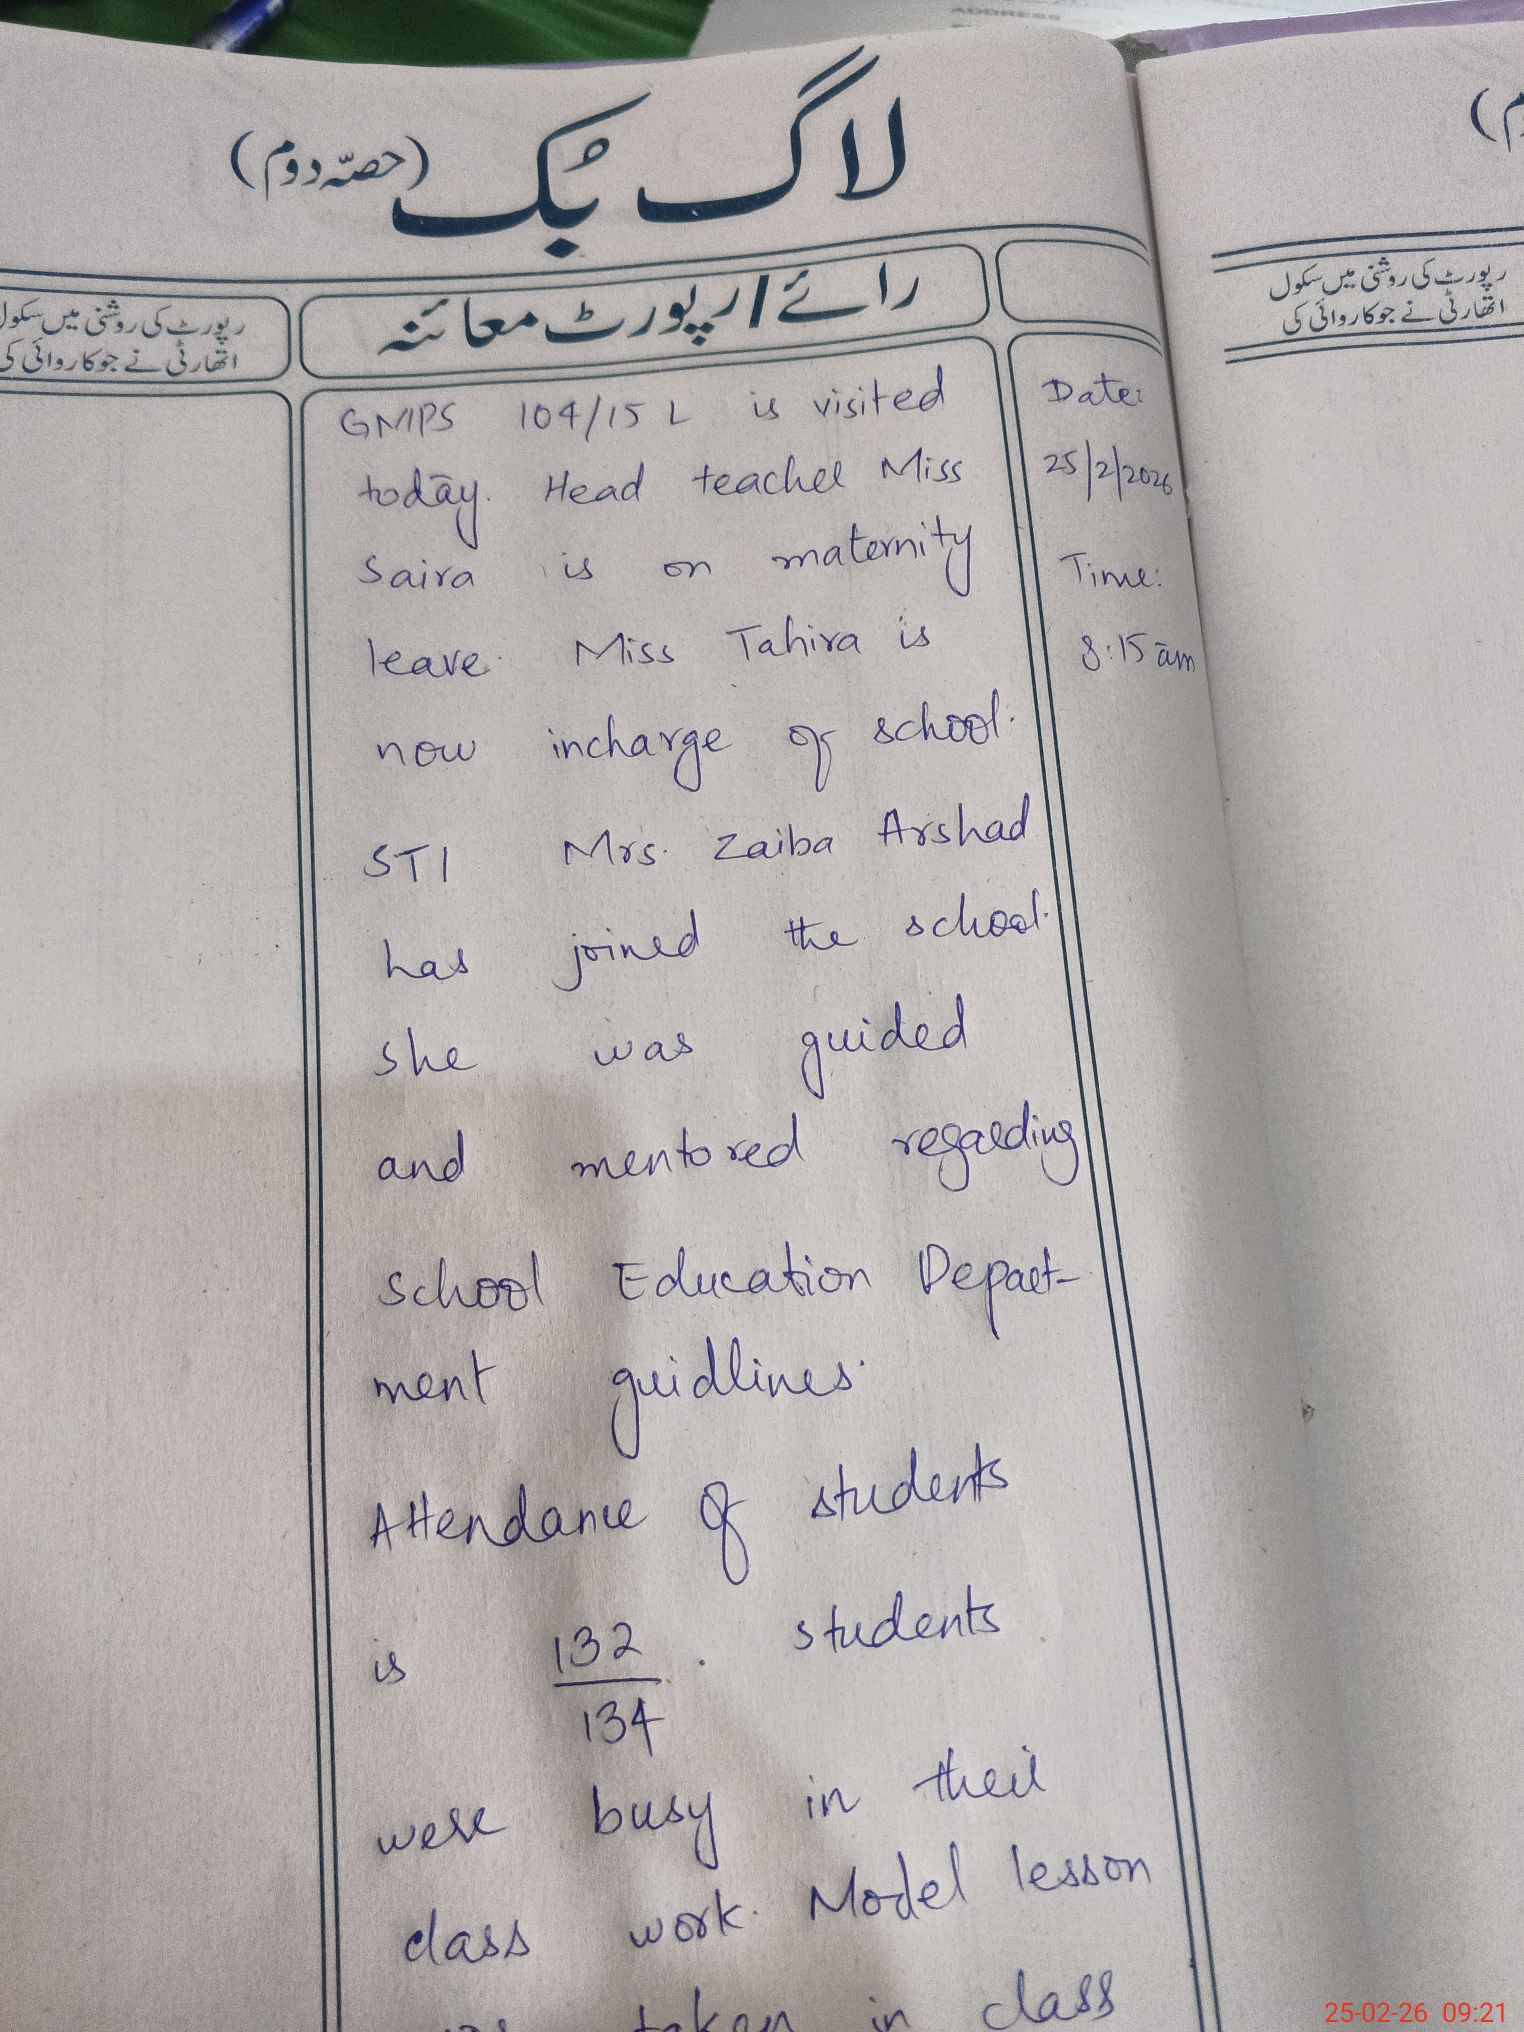 ADDRESS
لاگ بُک (حصّہ دوم)
رائے/رپورٹ معائنہ
رپورٹ کی روشنی میں سکول
اتھارٹی نے جو کاروائی کی
GMPS 104/15 L is visited
today. Head teacher Miss
Saira is on maternity
leave. Miss Tahira is
now incharge of school.
STI Mrs. Zaiba Arshad
has joined the school.
She was guided
and mentored regarding
School Education Depart-
ment guidlines.
Attendance of students
is 132/134. students
were busy in their
class work. Model lesson
taken in class
Date:
25/2/2026
Time:
8:15 am
رپورٹ کی روشنی میں سکول
اتھارٹی نے جو کاروائی کی
25-02-26 09:21